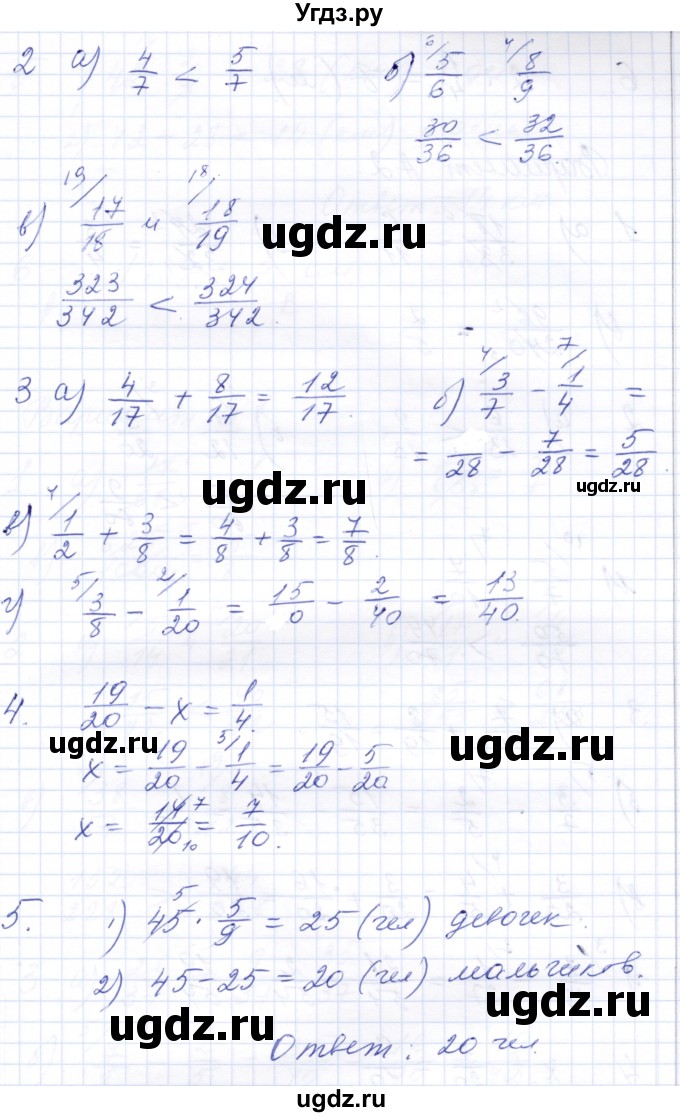 Угдз.ру
2 а) 4/7 < 5/7 б) ⁶⁄ 5/6 ⁴⁄ 8/9
30/36 < 32/36.
в) ¹⁹⁄ 17/18 и ¹⁸⁄ 18/19.
ugdz.ru
323/342 < 324/342.
3 а) 4/17 + 8/17 = 12/17. б) ⁴⁄ 3/7 - ⁷⁄ 1/4 =
= /28 - 7/28 = 5/28.
ugdz.ru
ugdz.ru
в) ⁴⁄ 1/2 + 3/8 = 4/8 + 3/8 = 7/8.
г) ⁵⁄ 3/8 - ²⁄ 1/20 = 15/0 - 2/40 = 13/40.
4. 19/20 - x = 1/4.
ugdz.ru
ugdz.ru
x = 19/20 - ⁵⁄ 1/4 = 19/20 - 5/20
x = 14 7/20 10 = 7/10.
5. 1) 45 5 · 5/9 = 25 (чел) девочек.
2) 45 - 25 = 20 (чел) мальчиков.
ugdz.ru
ugdz.ru
Ответ: 20 чел.